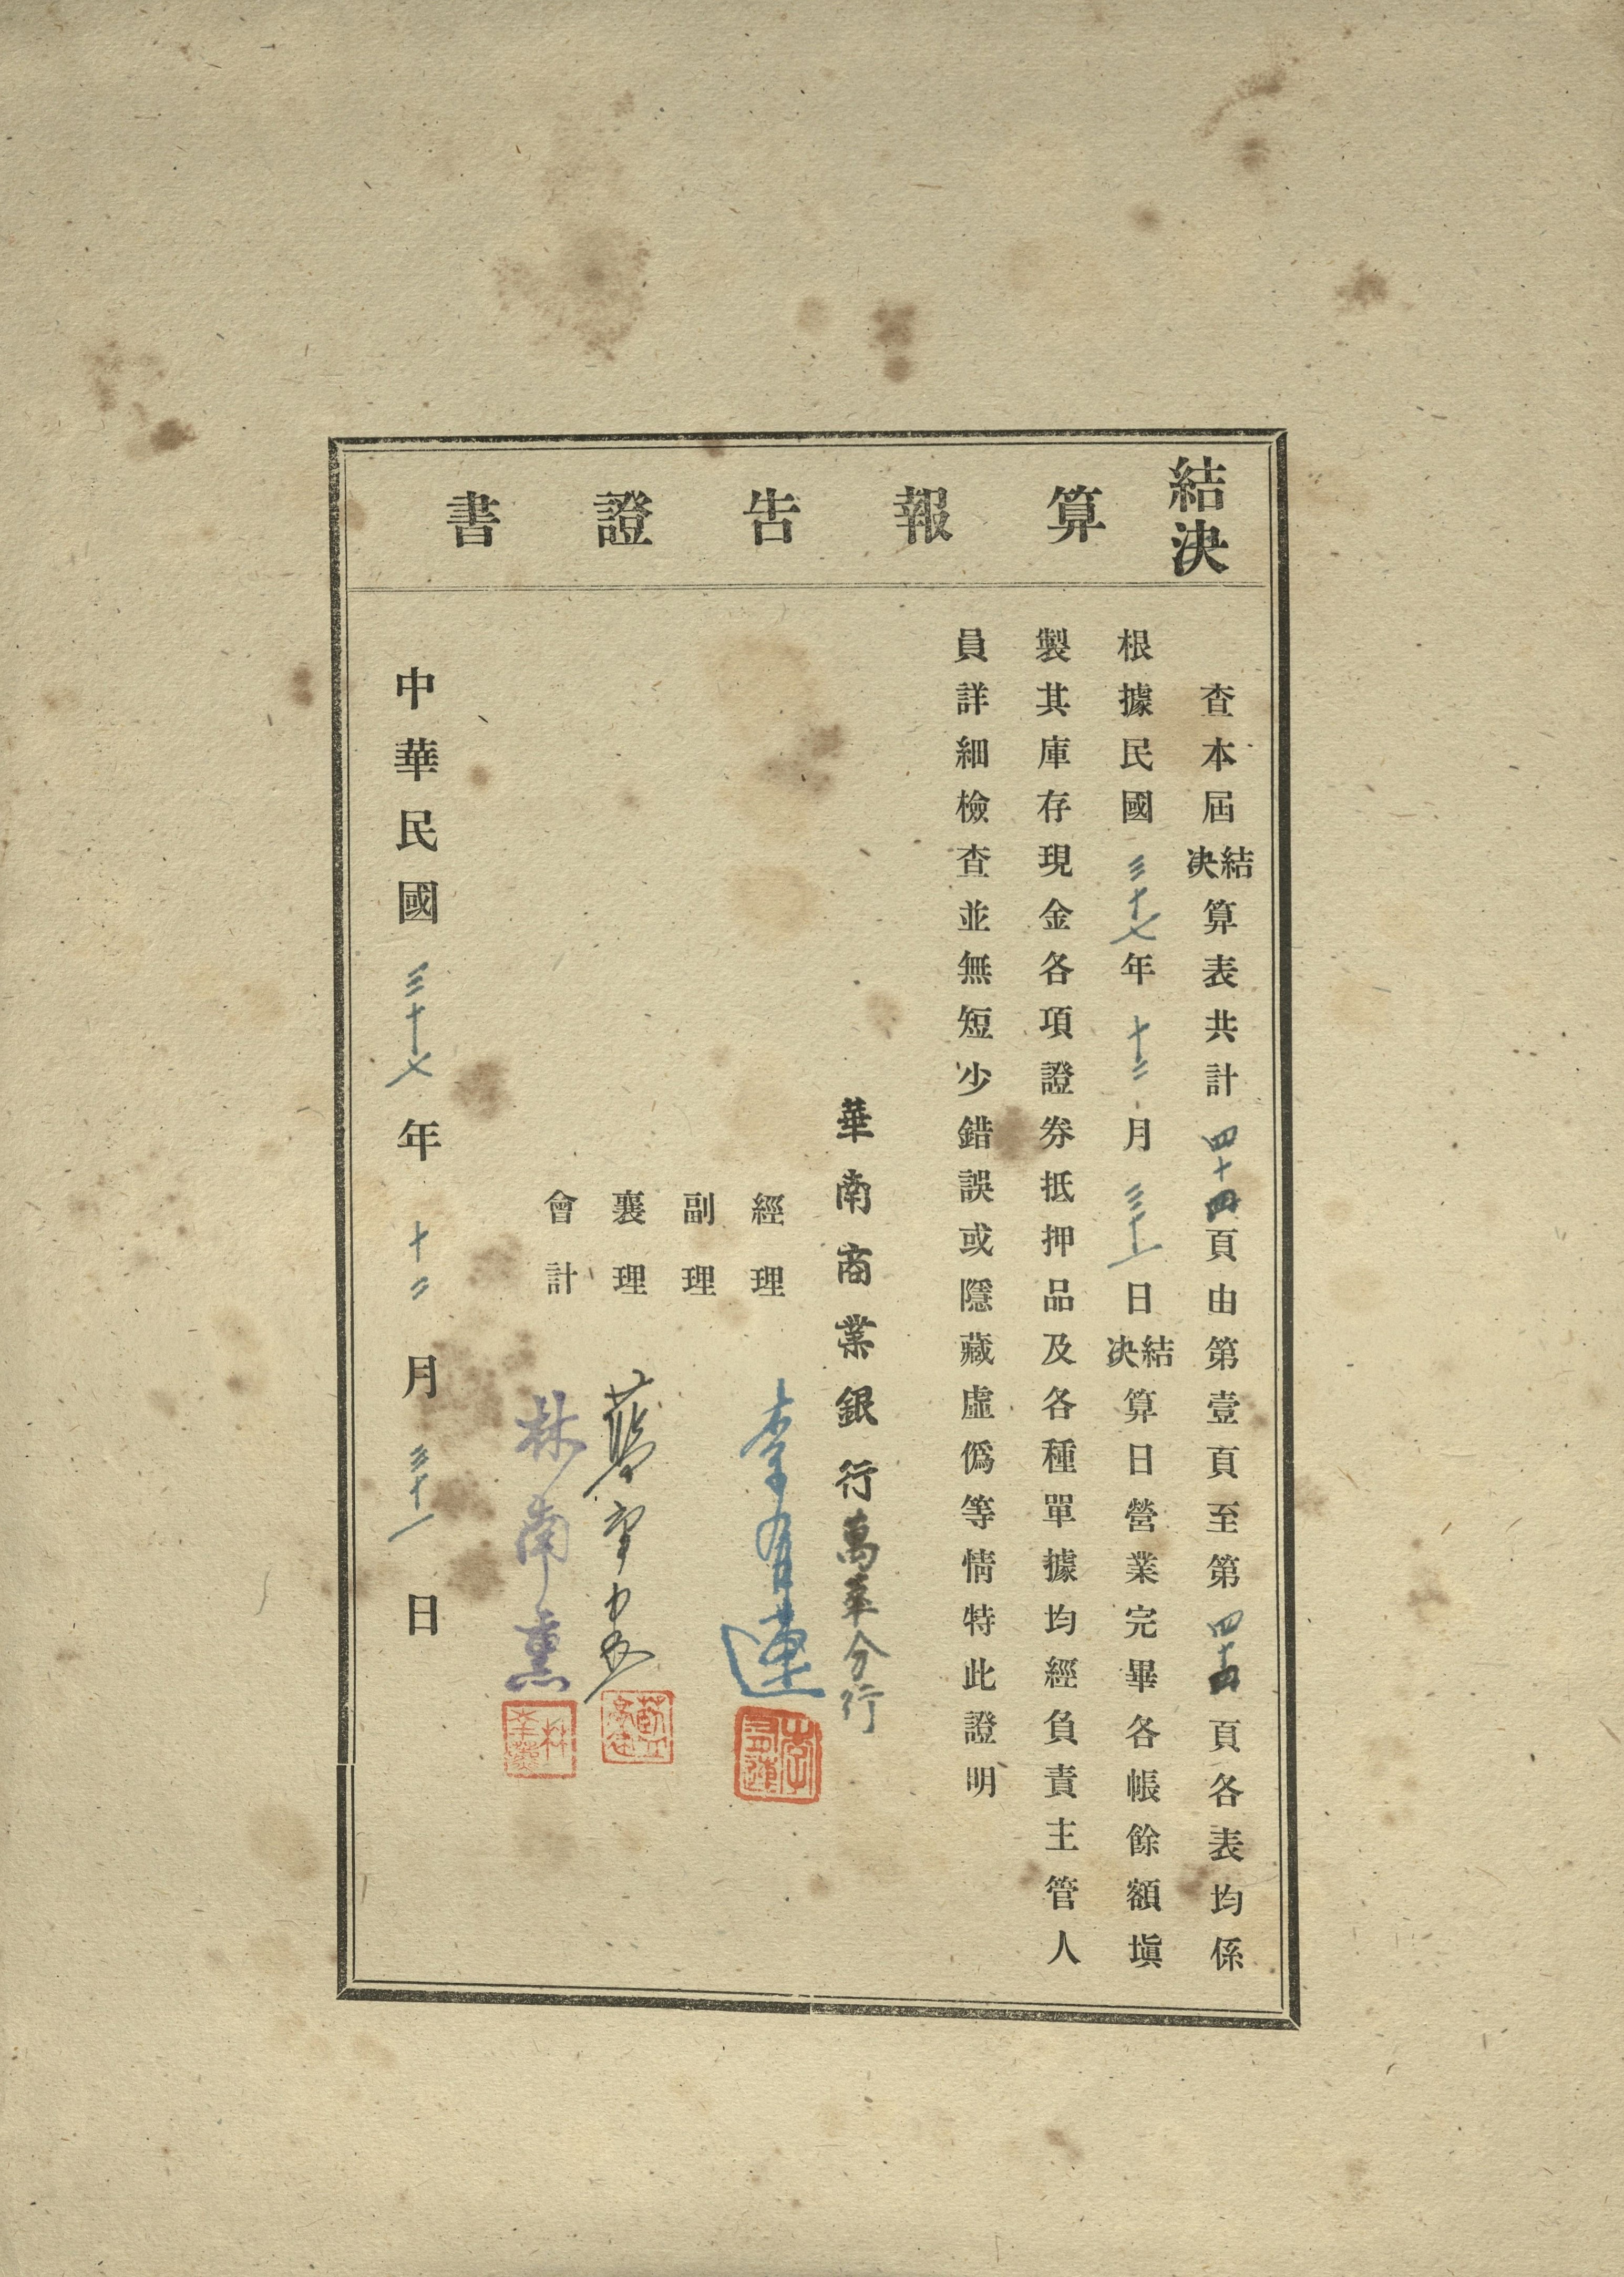 結決算報告證書
查本屆結決算表共計四十四頁由第壹頁至第四十四頁各表均係
根據民國三十七年十二月三十一日結決算日營業完畢各帳餘額塡
製其庫存現金各項證券抵押品及各種單據均經負責主管人
員詳細檢查並無短少錯誤或隱藏虛僞等情特此證明
華南商業銀行萬華分行
經理 李有連
副理
襄理
會計 林南熏
中華民國三十七年十二月三十一日